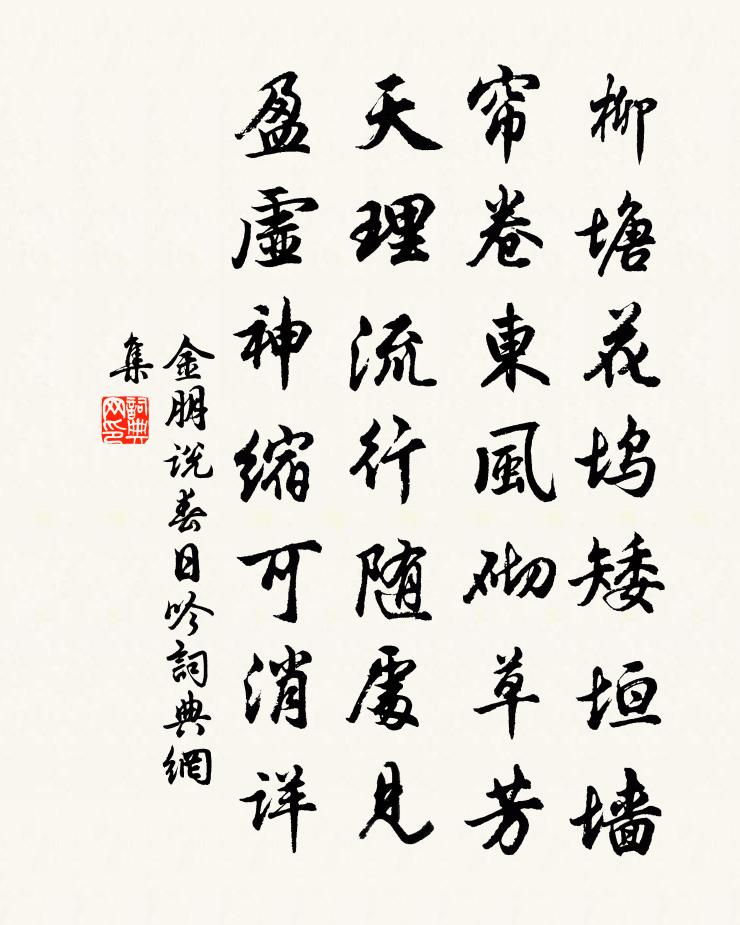 柳塘花坞矮垣墙
帘卷東風砌草芳
天理流行随處見
盈虚神缩可消详
金朋说春日吟詞典網
集
詞典网印